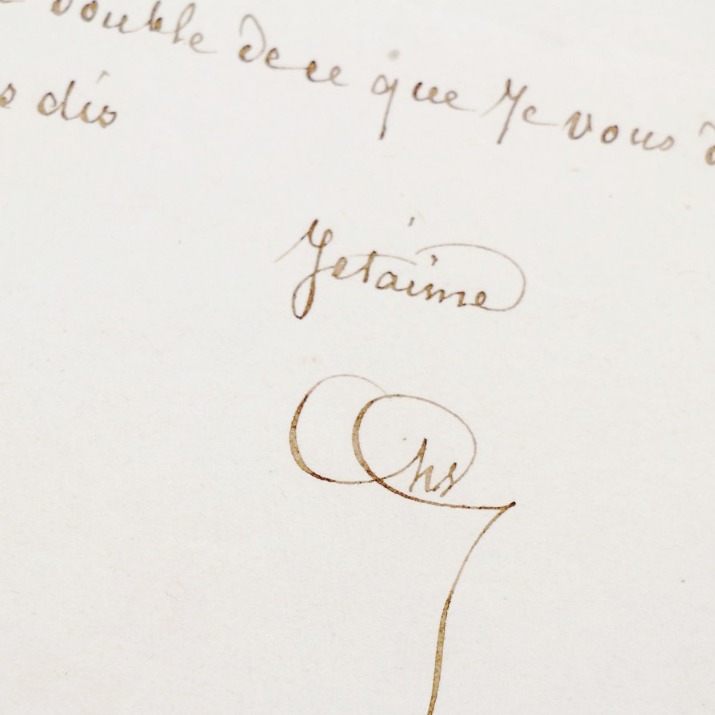 double de ce que Je vous d
s dis
Je t'aime
Chs